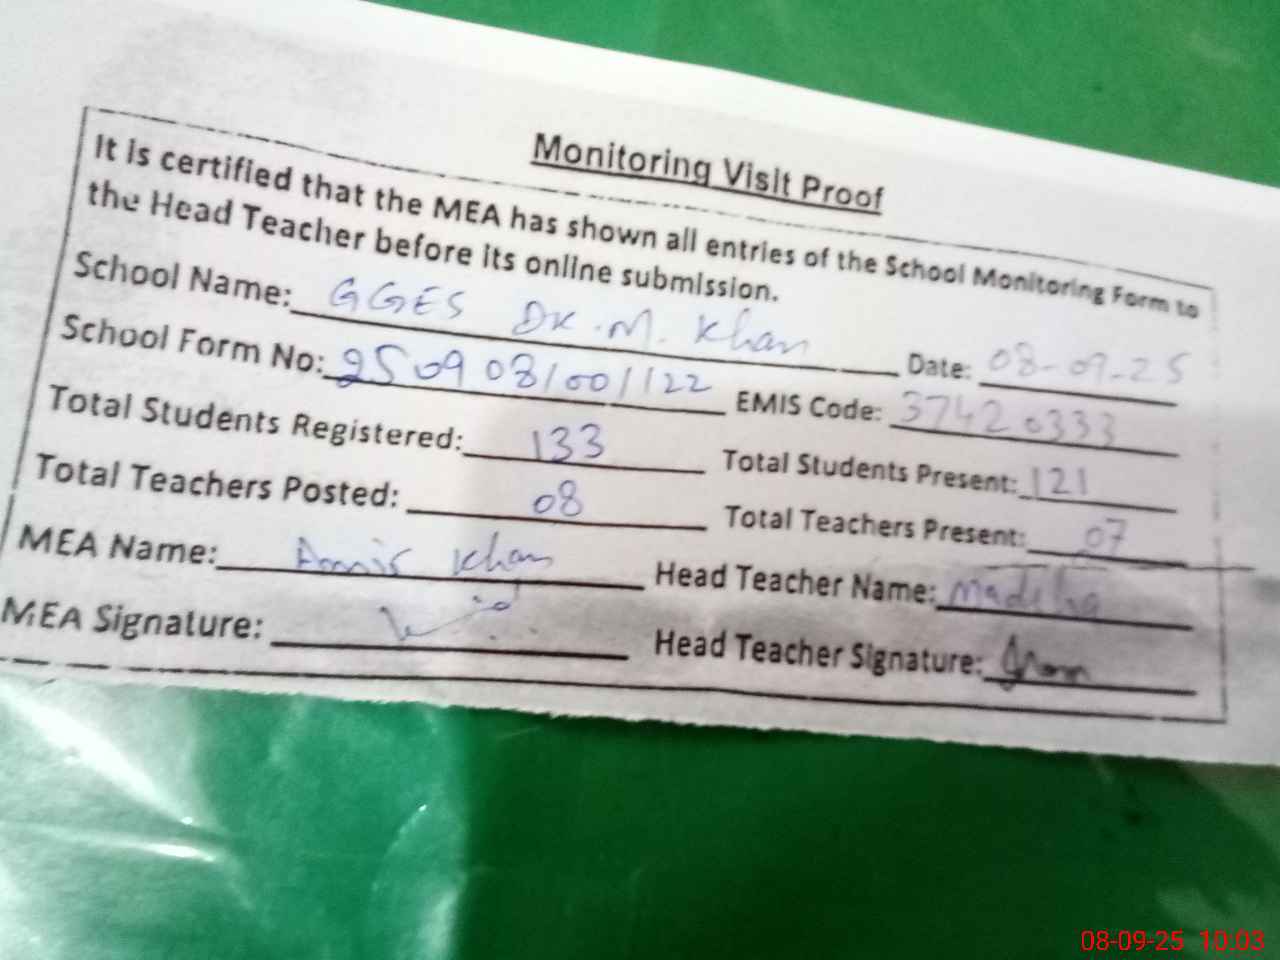 Monitoring Visit Proof
It is certified that the MEA has shown all entries of the School Monitoring Form to
the Head Teacher before its online submission.
School Name: GGES DK.M. Khan Date: 08-09-25
School Form No: 250908/001/122 EMIS Code: 37420333
Total Students Registered: 133 Total Students Present: 121
Total Teachers Posted: 08 Total Teachers Present: 07
MEA Name: Amir Khan Head Teacher Name: Madiha
MEA Signature: Head Teacher Signature:
08-09-25 10:03